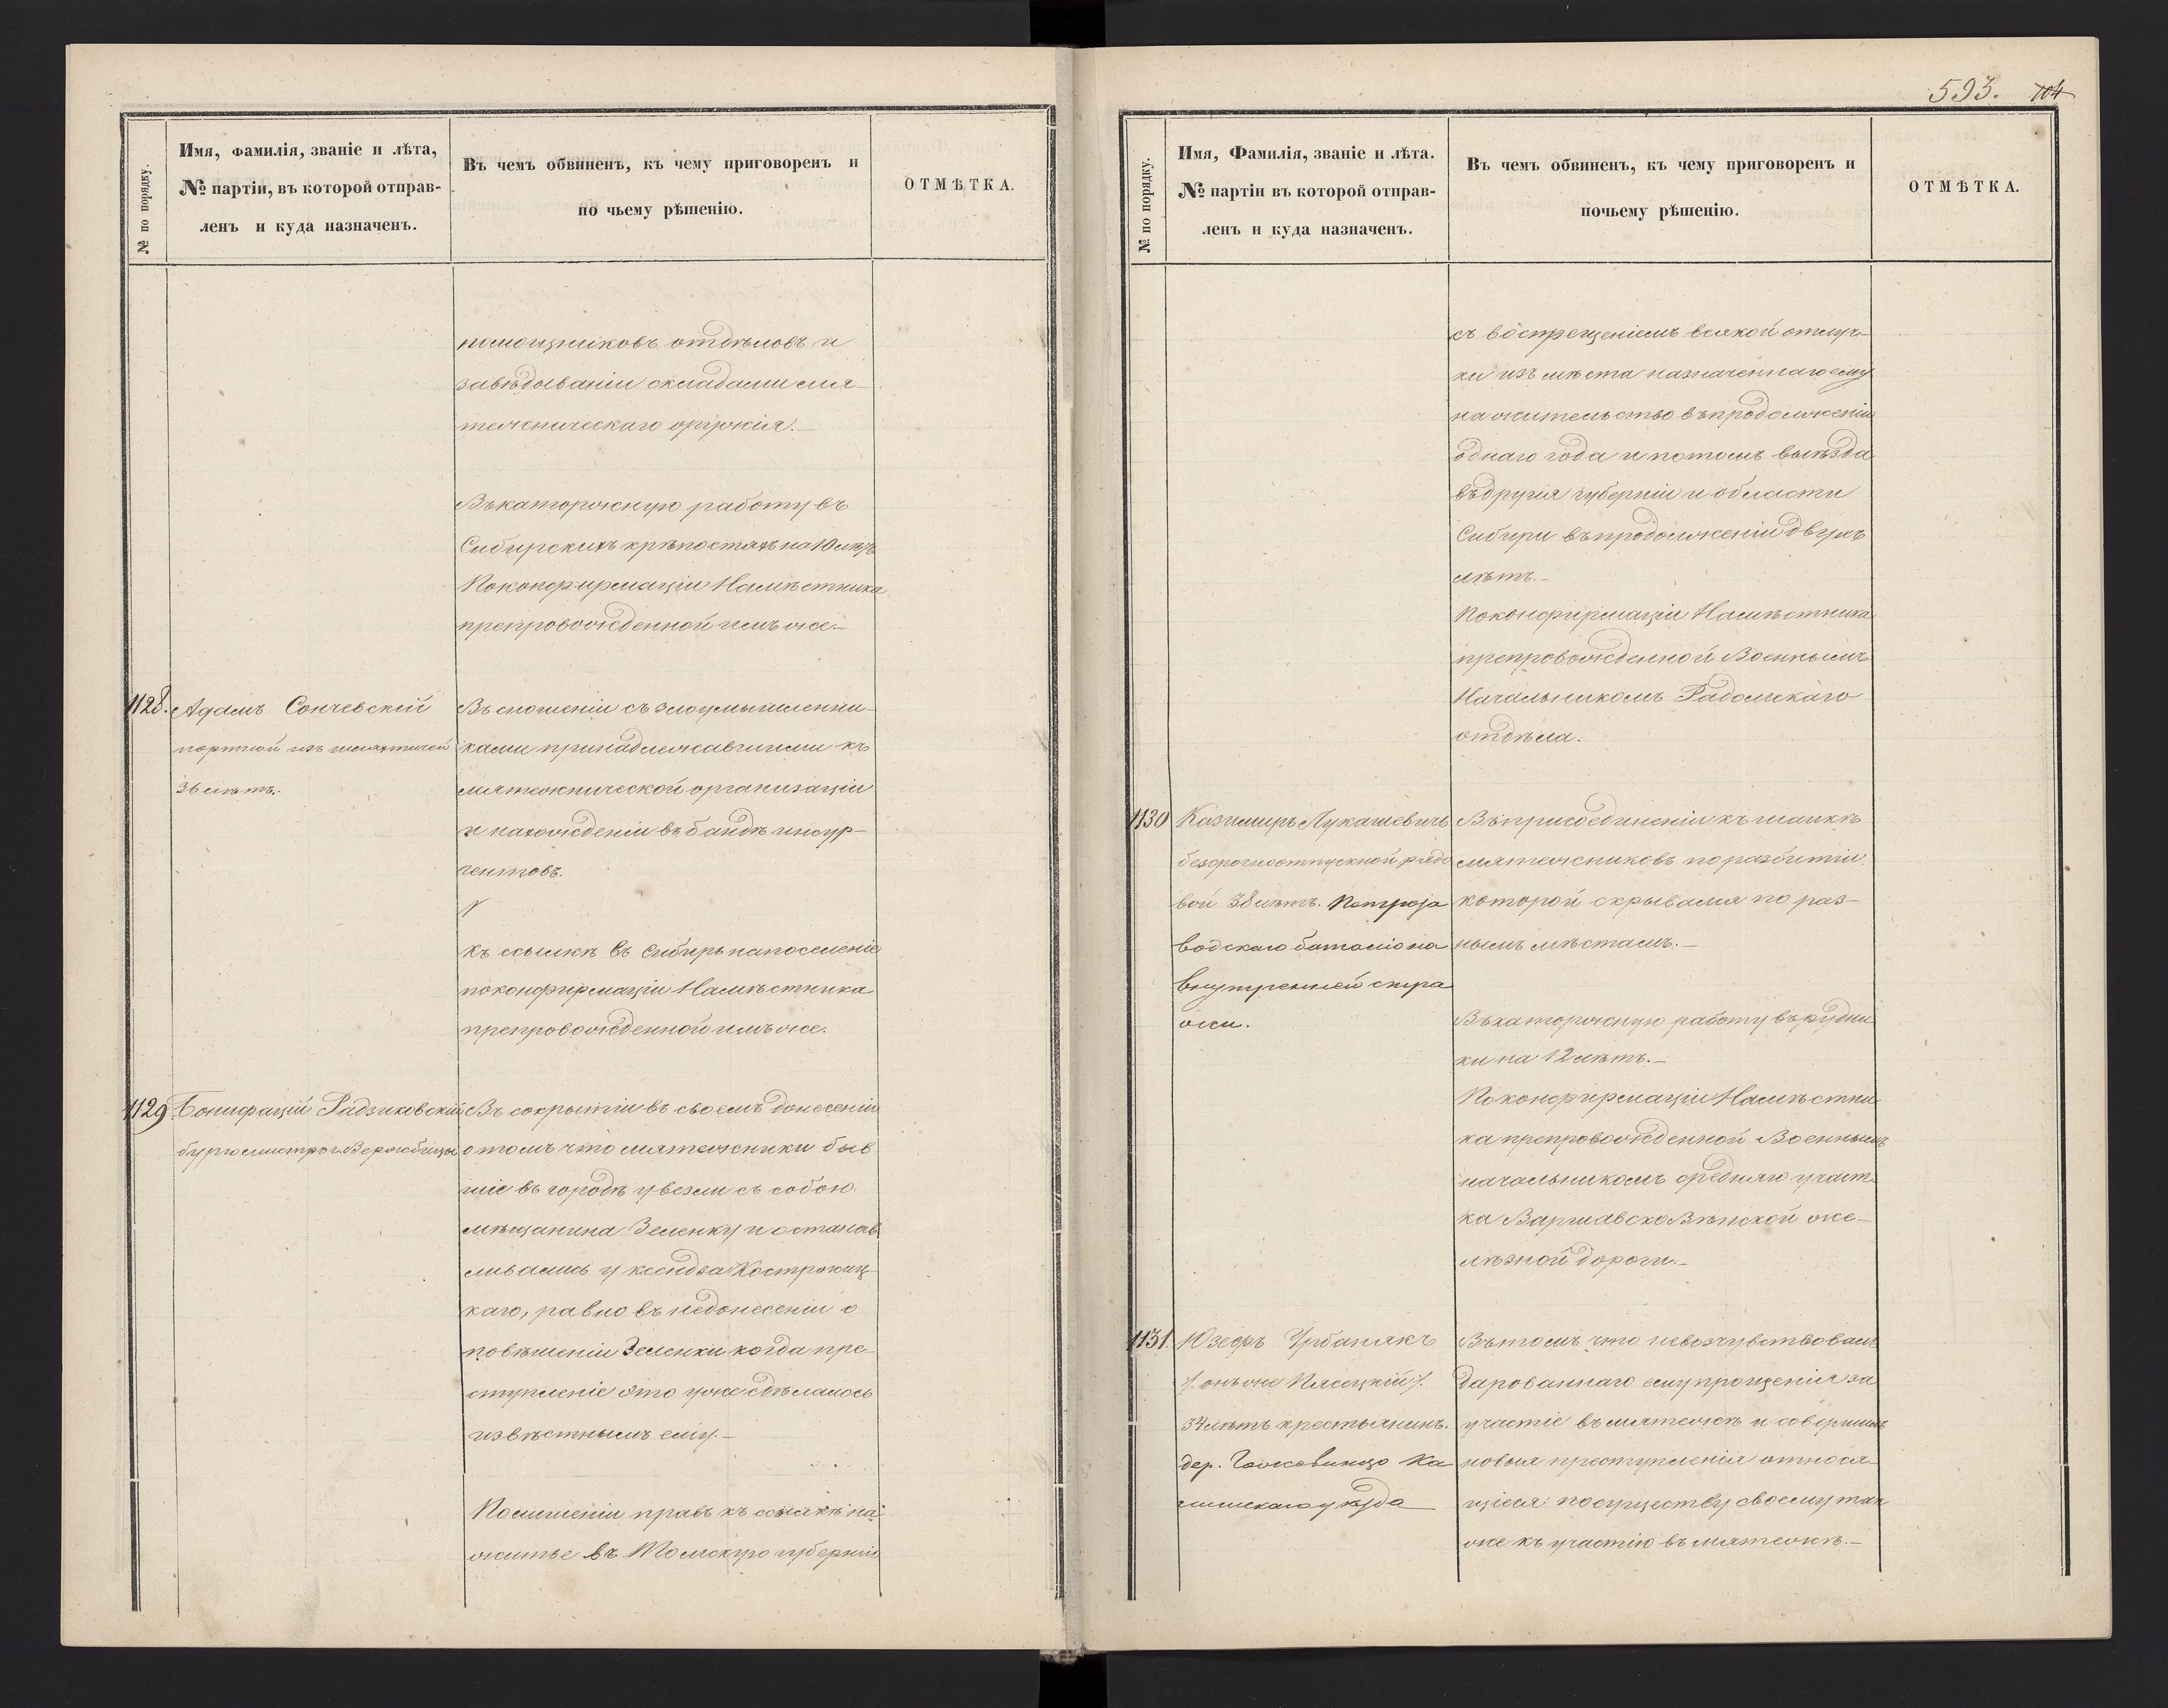 № по порядку.
Имя, фамилія, званіе и лѣта,
№ партіи, въ которой отправ-
ленъ и куда назначенъ.
Въ чемъ обвиненъ, къ чему приговоренъ и
по чьему рѣшенію.
ОТМѢТКА.
помощниковъ отдѣловъ и
завѣдываніи складами мя-
тежническаго оружія.–
Въ каторжную работу въ
Сибирскихъ крѣпостяхъ на 10 лѣтъ
По конфирмаціи Намѣстника
препровожденной имъ же.–
1128.
Адамъ Сончевскій
портной изъ шляхтичей
36 лѣтъ.
Въ сношеніи съ злоумышленни-
ками принадлежавшими къ
мятежнической организаціи
и нахожденіи въ бандѣ инсур-
гентовъ.
къ ссылкѣ въ Сибирь на поселеніе
по конфирмаціи Намѣстника
препровожденной имъ же.
1129
Бонифацій Радзиковскій
бургомистръ г.
Въ сокрытіи въ своемъ донесеніи
о томъ что мятежники быв
шіе въ городѣ увезли съ собою
мѣщанина Зеленку и останав
ливались у ксендза
каго, равно въ недонесеніи о
повѣшеніи Зеленки когда пре-
ступленіе это уже сдѣлалось
извѣстнымъ ему.–
По лишеніи правъ къ ссылкѣ на
житье въ Томскую губернію
593. 704
№ по порядку.
Имя, Фамилія, званіе и лѣта.
№ партіи въ которой отправ-
ленъ и куда назначенъ.
Въ чемъ обвиненъ, къ чему приговоренъ и
почьему рѣшенію.
ОТМѢТКА.
съ воспрещеніемъ всякой отлуч-
ки изъ мѣста назначеннаго ему
на жительство въ продолженіи
однаго года и потомъ выѣзда
въ другія губерніи и области
Сибири въ продолженіи двухъ
лѣтъ.–
По конфирмаціи Намѣстника
препровожденной Военнымъ
Начальникомъ Радомскаго
отдѣла.
1130
Казимиръ Лукашевичъ
безсрочноотпускной рядо
вой 38 лѣтъ. Петроза
водскаго баталіона
внутренней стра
жи.
Въ присоединеніи къ шайкѣ
мятежниковъ по разбитіи
которой скрывался по раз-
нымъ мѣстамъ.–
Въ каторжную работу въ рудни
ки на 12 лѣтъ.–
По конфирмаціи Намѣстни
ка препровожденной Военнымъ
начальникомъ средняго участ
ка Варшавско Вѣнской же-
лѣзной дороги.–
1131.
Юзефъ Урбанякъ
/: онъ же Пясецкій :/
34 лѣтъ крестьянинъ.
дер. Ка
лишскаго уѣзда
Въ томъ что невозчувствовалъ
дарованнаго ему прощенія за
участіе въ мятежѣ и совершилъ
новыя преступленія относя-
щіяся по существу своему так
же къ участію въ мятежѣ.–